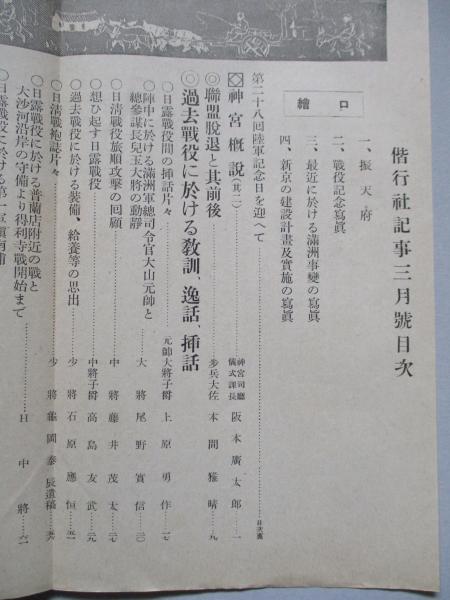 偕行社記事三月號目次
口繪
一、振天府
二、戰役記念寫眞
三、最近に於ける滿洲事變の寫眞
四、新京の建設計畫及實施の寫眞
第二十八回陸軍記念日を迎へて
神宮概說(其二) 神宮司廳儀式課長 阪本廣太郎 一
◎聯盟脫退と其前後 步兵大佐 本間雅晴 九
◎過去戰役に於ける教訓、逸話、揷話
○日露戰役間の揷話片々 元帥大將子爵 上原勇作 一七
○陣中に於ける滿洲軍總司令官大山元帥と
總參謀長兒玉大將の動靜 大將 尾野實信 二〇
○日淸戰役旅順攻擊の回顧 中將 藤井茂太 二七
○想ひ起す日露戰役 中將子爵 高島友武 二九
○過去戰役に於ける裝備、給養等の思出 少將 石原應恒
○日淸戰役袍誌片々 少將 龜岡泰辰遺稿
○日露戰役に於ける普蘭店附近の戰と
大沙河沿岸の守備より得利寺戰開始まで H中將 六一
○日露戰役に於ける第一軍